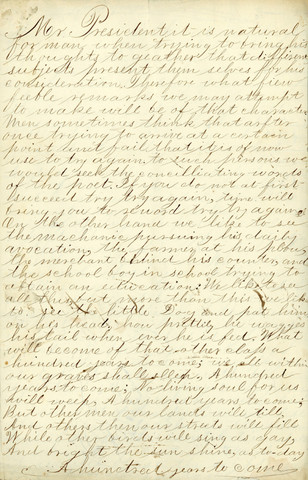 Mr. President it is natural
for man when trying to bring his
thoughts to geather that different
subjects present them selves for his
consideration. Therefore what few
feable remarks we may attempt
to make will be of that charecter
Men sometimes think that after
once trying to arrive at a certain
point and fail that it is of now
use to try again to such persons we
would seek the concilliating words
of the poet. If you do not at first
succeed try try again, time will
bring you to reward try try again.
On the other hand we like to see
the mechanic pursuing his daily
avocation, the farmer at his labor
the merchant behind his counter, and
the school boy in school trying to
obtain an education; We like to see
all this but more than this we like
to see the little Dog and pat him
on his head, how pretty he waggs
his tail when ever he is fed. What
will become of that a hundred
years to come; us all within
our graves shall sleep, A hundred
years to come; No living soul for us
will weep A hundred years to come;
But other men our lands will till
And others then our streets will fill
While other birds will sing as gay
And bright the sun shine as to-day
A hundred years to come